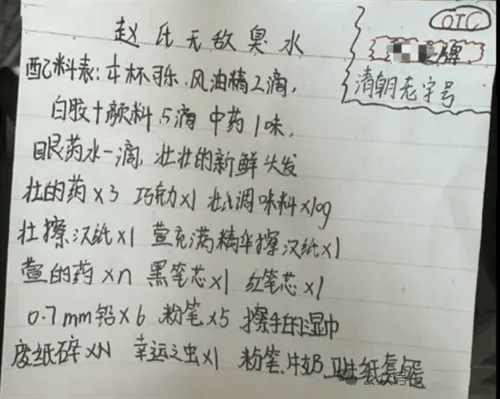 赵氏无敌臭水
OTC
牌
清朝老字号
配料表:半杯可乐、风油精2滴,
白胶+颜料5滴 中药1味,
眼药水一滴, 壮壮的新鲜头发
壮的药×3 巧克力×1 壮的调味料×10g
壮擦汉纸×1 萱充满精华擦汉纸×1
萱的药×n 黑笔芯×1 红笔芯×1
0.7mm铅×6 粉笔×5 擦手的湿巾
废纸碎×N 幸运之虫×1 粉笔、牛奶 卫生纸